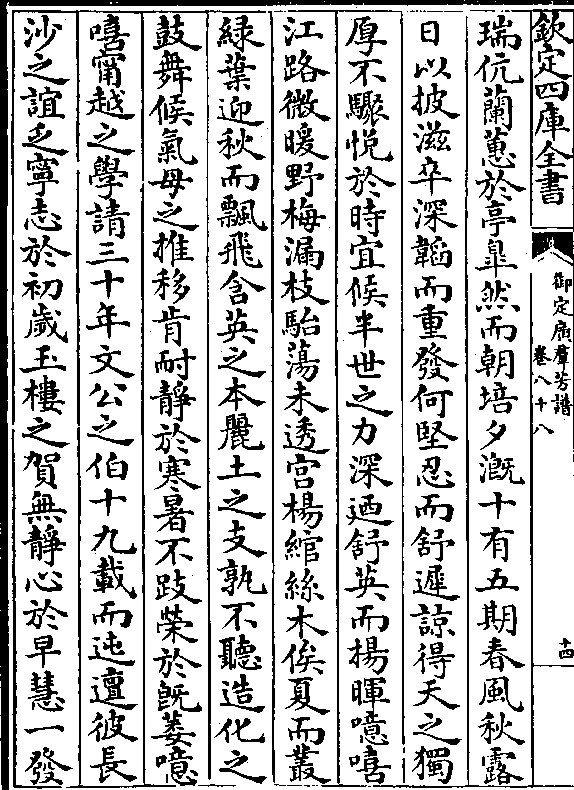 欽定四庫全書
御定廣羣芳譜
卷八十八
十四
瑞伉蘭蕙於亭臯然而朝培夕漑十有五期春風秋露
日以披滋卒深韜而重發何堅忍而舒遲諒得天之獨
厚不驟悅於時宜候半世之力深迺舒英而揚暉噫嘻
江路微暖野梅漏枝駘蕩未透宫楊綰絲木俟夏而叢
緑葉迎秋而飄飛含英之本麗土之支孰不聽造化之
鼓舞候氣母之推移肯耐靜於寒暑不跂榮於既萎噫
嘻甯越之學請三十年文公之伯十九載而迍邅彼長
沙之誼乏寧志於初歲玉樓之賀無靜心於早慧一發